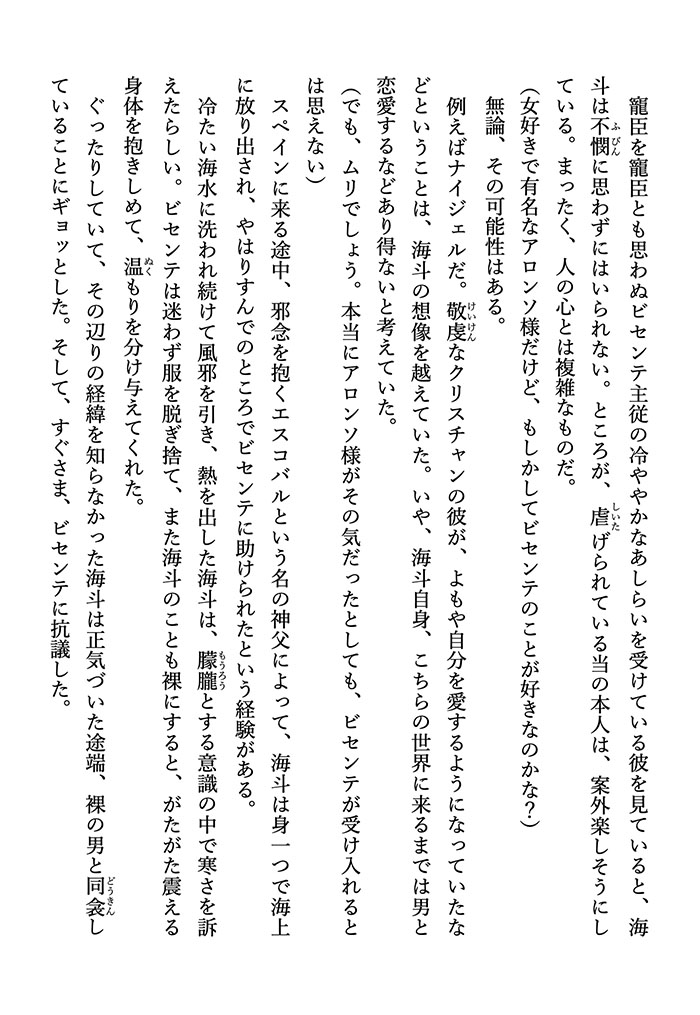 寵臣を寵臣とも思わぬビセンテ主従の冷ややかなあしらいを受けている彼を見ていると、海
斗は不憫に思わずにはいられない。ところが、虐げられている当の本人は、案外楽しそうにし
ている。まったく、人の心とは複雑なものだ。
(女好きで有名なアロンソ様だけど、もしかしてビセンテのことが好きなのかな?)
無論、その可能性はある。
例えばナイジェルだ。敬虔なクリスチャンの彼が、よもや自分を愛するようになっていたな
どということは、海斗の想像を越えていた。いや、海斗自身、こちらの世界に来るまでは男と
恋愛するなどあり得ないと考えていた。
(でも、ムリでしょう。本当にアロンソ様がその気だったとしても、ビセンテが受け入れると
は思えない)
スペインに来る途中、邪念を抱くエスコバルという名の神父によって、海斗は身一つで海上
に放り出され、やはりすんでのところでビセンテに助けられたという経験がある。
冷たい海水に洗われ続けて風邪を引き、熱を出した海斗は、朦朧とする意識の中で寒さを訴
えたらしい。ビセンテは迷わず服を脱ぎ捨て、また海斗のことも裸にすると、がたがた震える
身体を抱きしめて、温もりを分け与えてくれた。
ぐったりしていて、その辺りの経緯を知らなかった海斗は正気づいた途端、裸の男と同衾し
ていることにギョッとした。そして、すぐさま、ビセンテに抗議した。